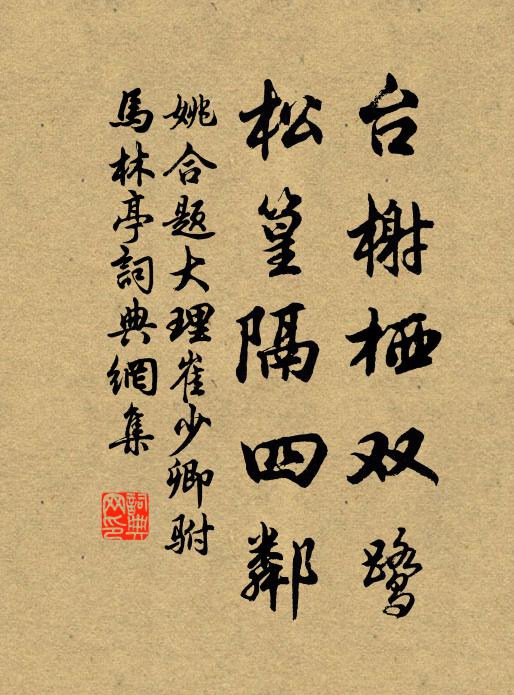 台榭栖双鹭
松篁隔四鄰
姚合题大理崔少卿駙
馬林亭詞典網集
詞典网印